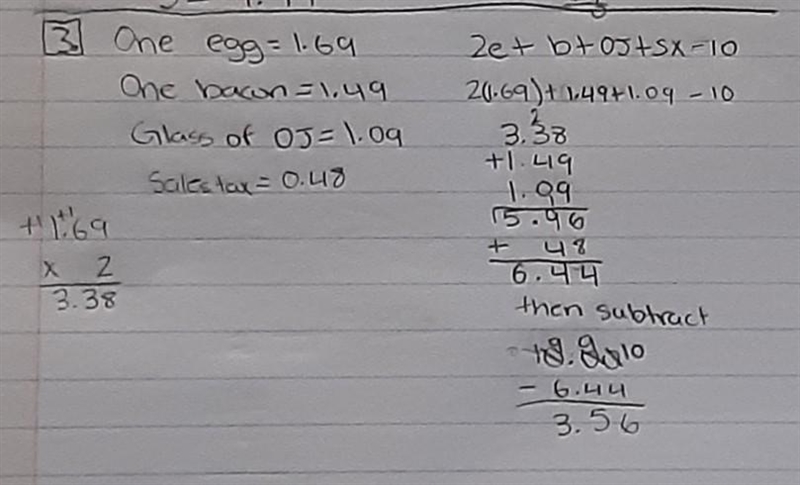 3. One egg = 1.69
One bacon = 1.49
Glass of OJ = 1.09
Sales tax = 0.48
+1 +1
1.69
x 2
3.38
2e + b + OJ + sx - 10
2(1.69) + 1.49 + 1.09 - 10
2
3.38
+1.49
1.09
5.96
+ 48
6.44
then subtract
10
- 6.44
3.56